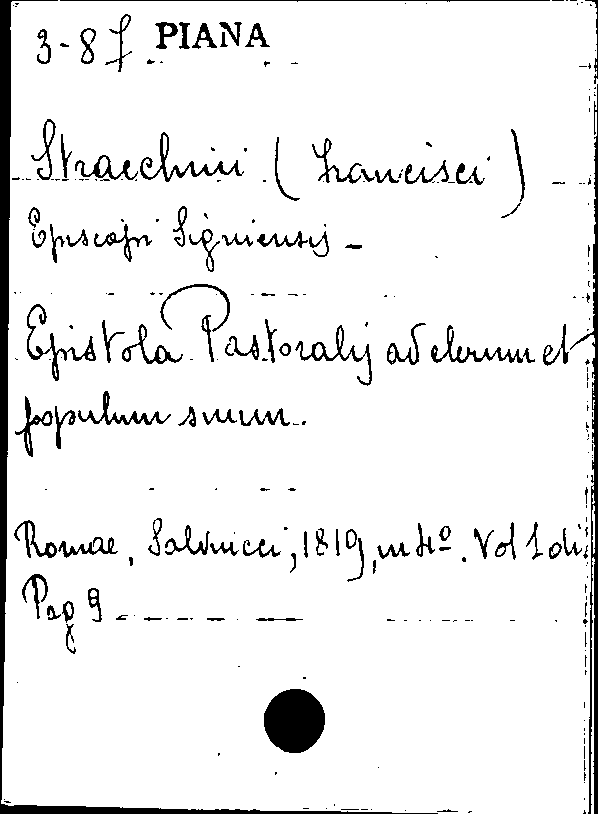 3-8 f PIANA
Stracchini (Francisci)
Episcopi Signiensis -
Epistola Pastoralis ad clerum et
populum suum.
Romae, Salviucci, 1819, in 4º. Vol 1 di
Pag 9